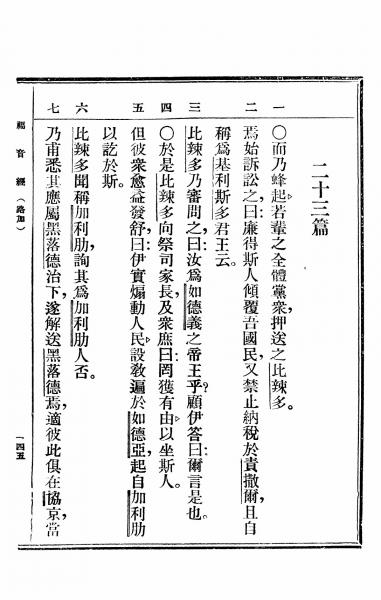 二十三篇
一 ○而乃蜂起、若輩之全體黨衆,押送之比辣多。
二 焉始訴訟之曰:廉得斯人傾覆吾國民,又禁止納稅於責撒爾,且自
稱爲基利斯多君王云。
三 比辣多乃審問之曰:汝爲如德義之帝王乎?顧伊答曰:爾言是也。
四 ○於是比辣多向祭司家長及衆庶曰:罔獲有由、以坐斯人。
五 但彼衆愈益發舒曰:伊實煽動人民、設敎遍於如德亞,起自加利肋
以訖於斯。
六 比辣多聞稱加利肋,詢其爲加利肋人否。
七 乃甫悉其應屬黑落德治下,遂解送黑落德焉,適彼此俱在協京,當
福音經(路加)
一四五